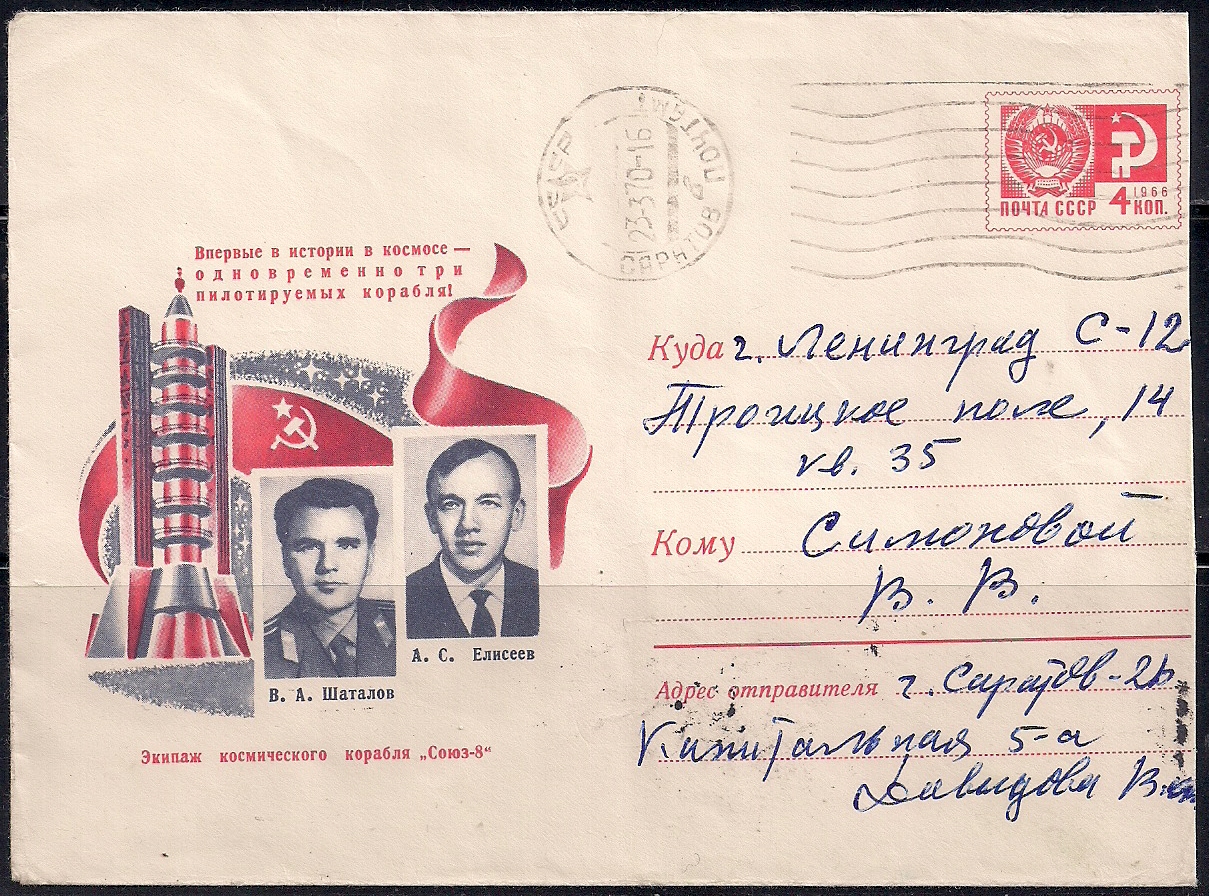 СССР
САРАТОВ
ПОЧТАМТ
23-370-16
1966
ПОЧТА СССР 4 КОП.
Впервые в истории в космосе —
одновременно три
пилотируемых корабля!
А. С. Елисеев
В. А. Шаталов
Экипаж космического корабля „Союз-8“
Куда г. Ленинград С-12
Троицкое поле, 14
кв. 35
Кому Симоновой
В. В.
Адрес отправителя г. Саратов-2
Капитальная 5-а
Давидова